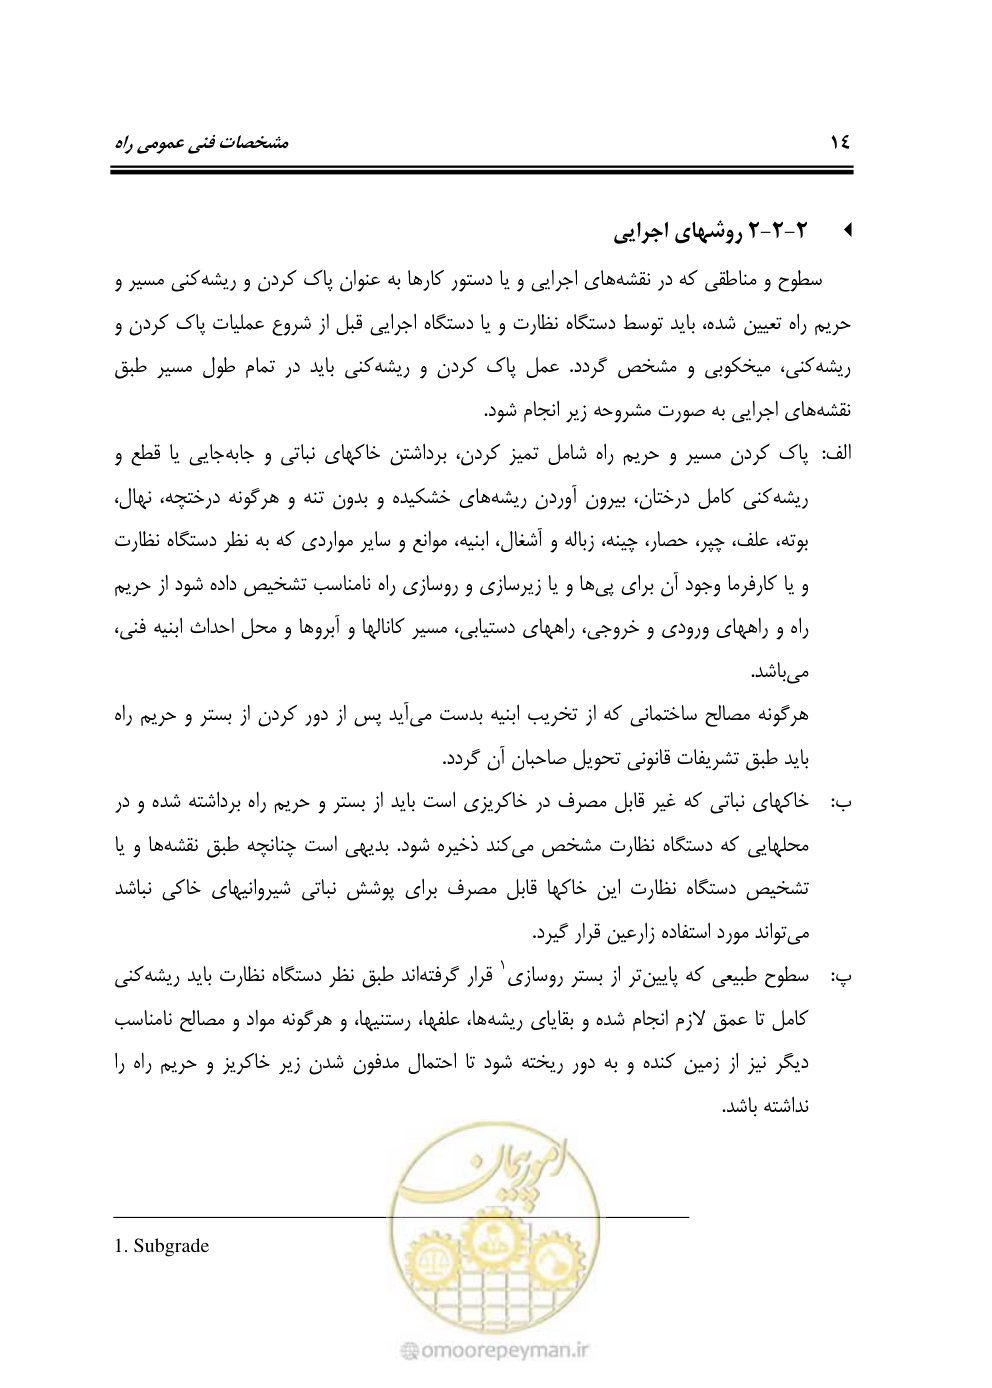 ١٤ مشخصات فنی عمومی راه
۲-۲-۲ روشهای اجرایی
سطوح و مناطقی که در نقشه‌های اجرایی و یا دستور کارها به عنوان پاک کردن و ریشه‌کنی مسیر و
حریم راه تعیین شده، باید توسط دستگاه نظارت و یا دستگاه اجرایی قبل از شروع عملیات پاک کردن و
ریشه‌کنی، میخکوبی و مشخص گردد. عمل پاک کردن و ریشه‌کنی باید در تمام طول مسیر طبق
نقشه‌های اجرایی به صورت مشروحه زیر انجام شود.
الف: پاک کردن مسیر و حریم راه شامل تمیز کردن، برداشتن خاکهای نباتی و جابه‌جایی یا قطع و
ریشه‌کنی کامل درختان، بیرون آوردن ریشه‌های خشکیده و بدون تنه و هرگونه درختچه، نهال،
بوته، علف، چپر، حصار، چینه، زباله و آشغال، ابنیه، موانع و سایر مواردی که به نظر دستگاه نظارت
و یا کارفرما وجود آن برای پی‌ها و یا زیرسازی و روسازی راه نامناسب تشخیص داده شود از حریم
راه و راههای ورودی و خروجی، راههای دستیابی، مسیر کانالها و آبروها و محل احداث ابنیه فنی،
می‌باشد.
هرگونه مصالح ساختمانی که از تخریب ابنیه بدست می‌آید پس از دور کردن از بستر و حریم راه
باید طبق تشریفات قانونی تحویل صاحبان آن گردد.
ب: خاکهای نباتی که غیر قابل مصرف در خاکریزی است باید از بستر و حریم راه برداشته شده و در
محلهایی که دستگاه نظارت مشخص می‌کند ذخیره شود. بدیهی است چنانچه طبق نقشه‌ها و یا
تشخیص دستگاه نظارت این خاکها قابل مصرف برای پوشش نباتی شیروانیهای خاکی نباشد
می‌تواند مورد استفاده زارعین قرار گیرد.
پ: سطوح طبیعی که پایین‌تر از بستر روسازی۱ قرار گرفته‌اند طبق نظر دستگاه نظارت باید ریشه‌کنی
کامل تا عمق لازم انجام شده و بقایای ریشه‌ها، علفها، رستنیها، و هرگونه مواد و مصالح نامناسب
دیگر نیز از زمین کنده و به دور ریخته شود تا احتمال مدفون شدن زیر خاکریز و حریم راه را
نداشته باشد.
امور پیمان
1. Subgrade
@omoorepeyman.ir